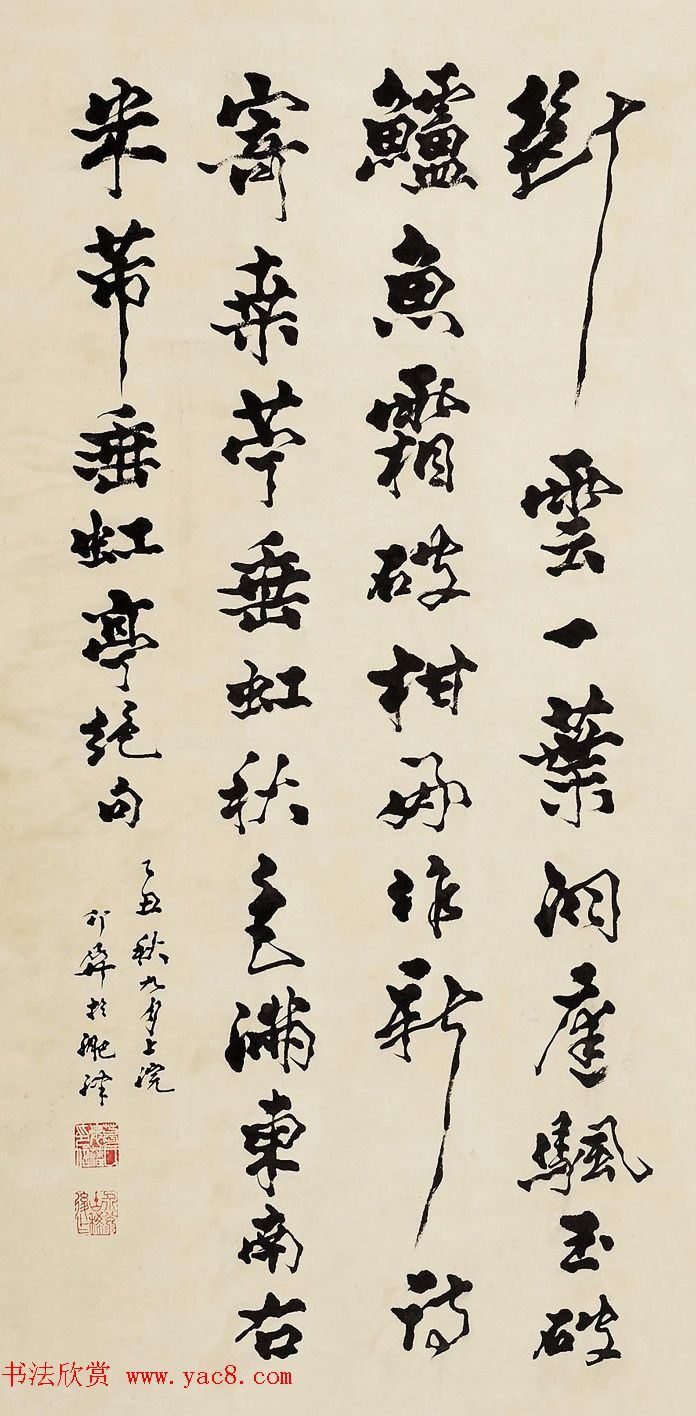 斷雲一葉洞庭颿玉破
鱸魚霜破柑好作新詩
寄桑苧垂虹秋色滿東南右
米芾垂虹亭絶句
乙丑秋九月上浣
介屏於肥
书法欣赏 www.yac8.com